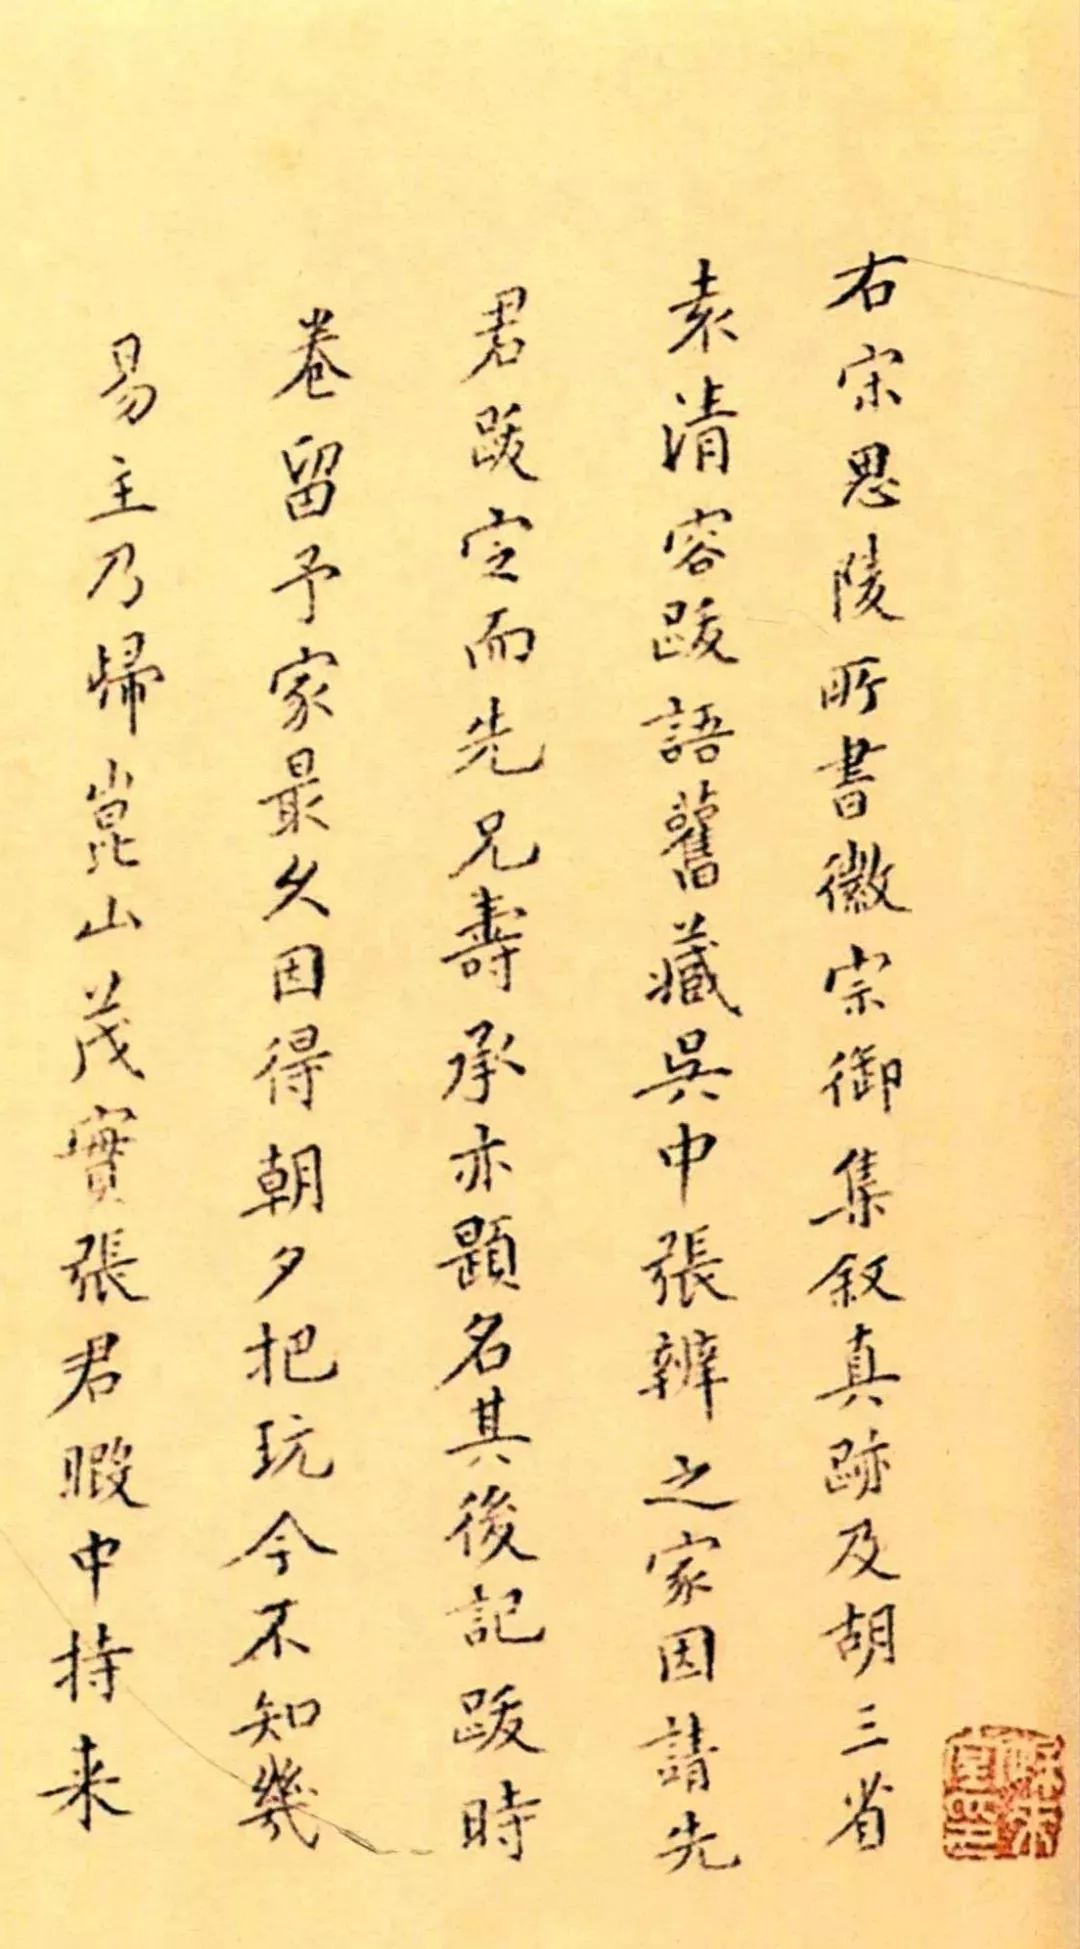 右宋思陵所書徽宗御集叙真跡及胡三省
袁清容跋語舊藏吳中張辨之家因請先
君跋定而先兄壽承亦題名其後記跋時
卷留予家最久因得朝夕把玩今不知幾
易主乃歸崑山茂實張君暇中持来